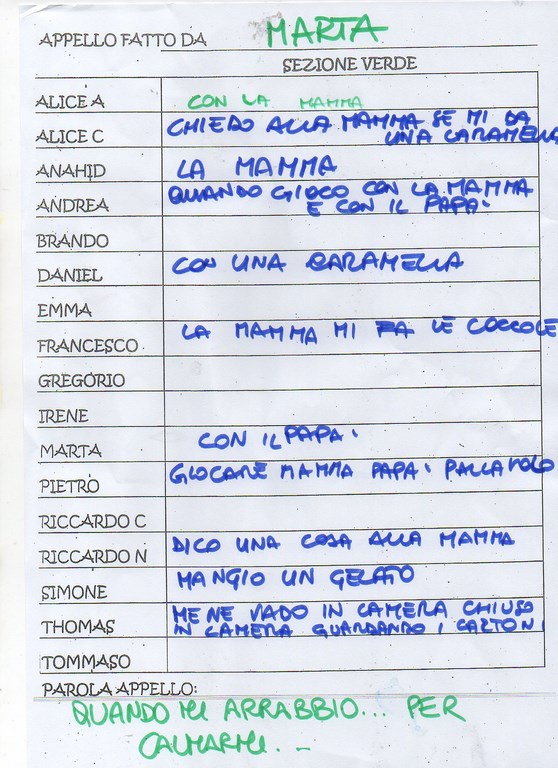 APPELLO FATTO DA MARTA
SEZIONE VERDE
ALICE A CON LA MAMMA
ALICE C CHIEDO ALLA MAMMA SE MI DA
UNA CARAMELLA
ANAHID LA MAMMA
ANDREA QUANDO GIOCO CON LA MAMMA
E CON IL PAPA'
BRANDO
DANIEL CON UNA CARAMELLA
EMMA
FRANCESCO LA MAMMA MI FA LE COCCOLE
GREGORIO
IRENE
MARTA CON IL PAPA'
PIETRO GIOCARE MAMMA PAPA' PALLAVOLO
RICCARDO C
RICCARDO N DICO UNA COSA ALLA MAMMA
SIMONE MANGIO UN GELATO
THOMAS ME NE VADO IN CAMERA CHIUSO
IN CAMERA GUARDANDO I CARTONI
TOMMASO
PAROLA APPELLO:
QUANDO MI ARRABBIO... PER
CALMARMI...